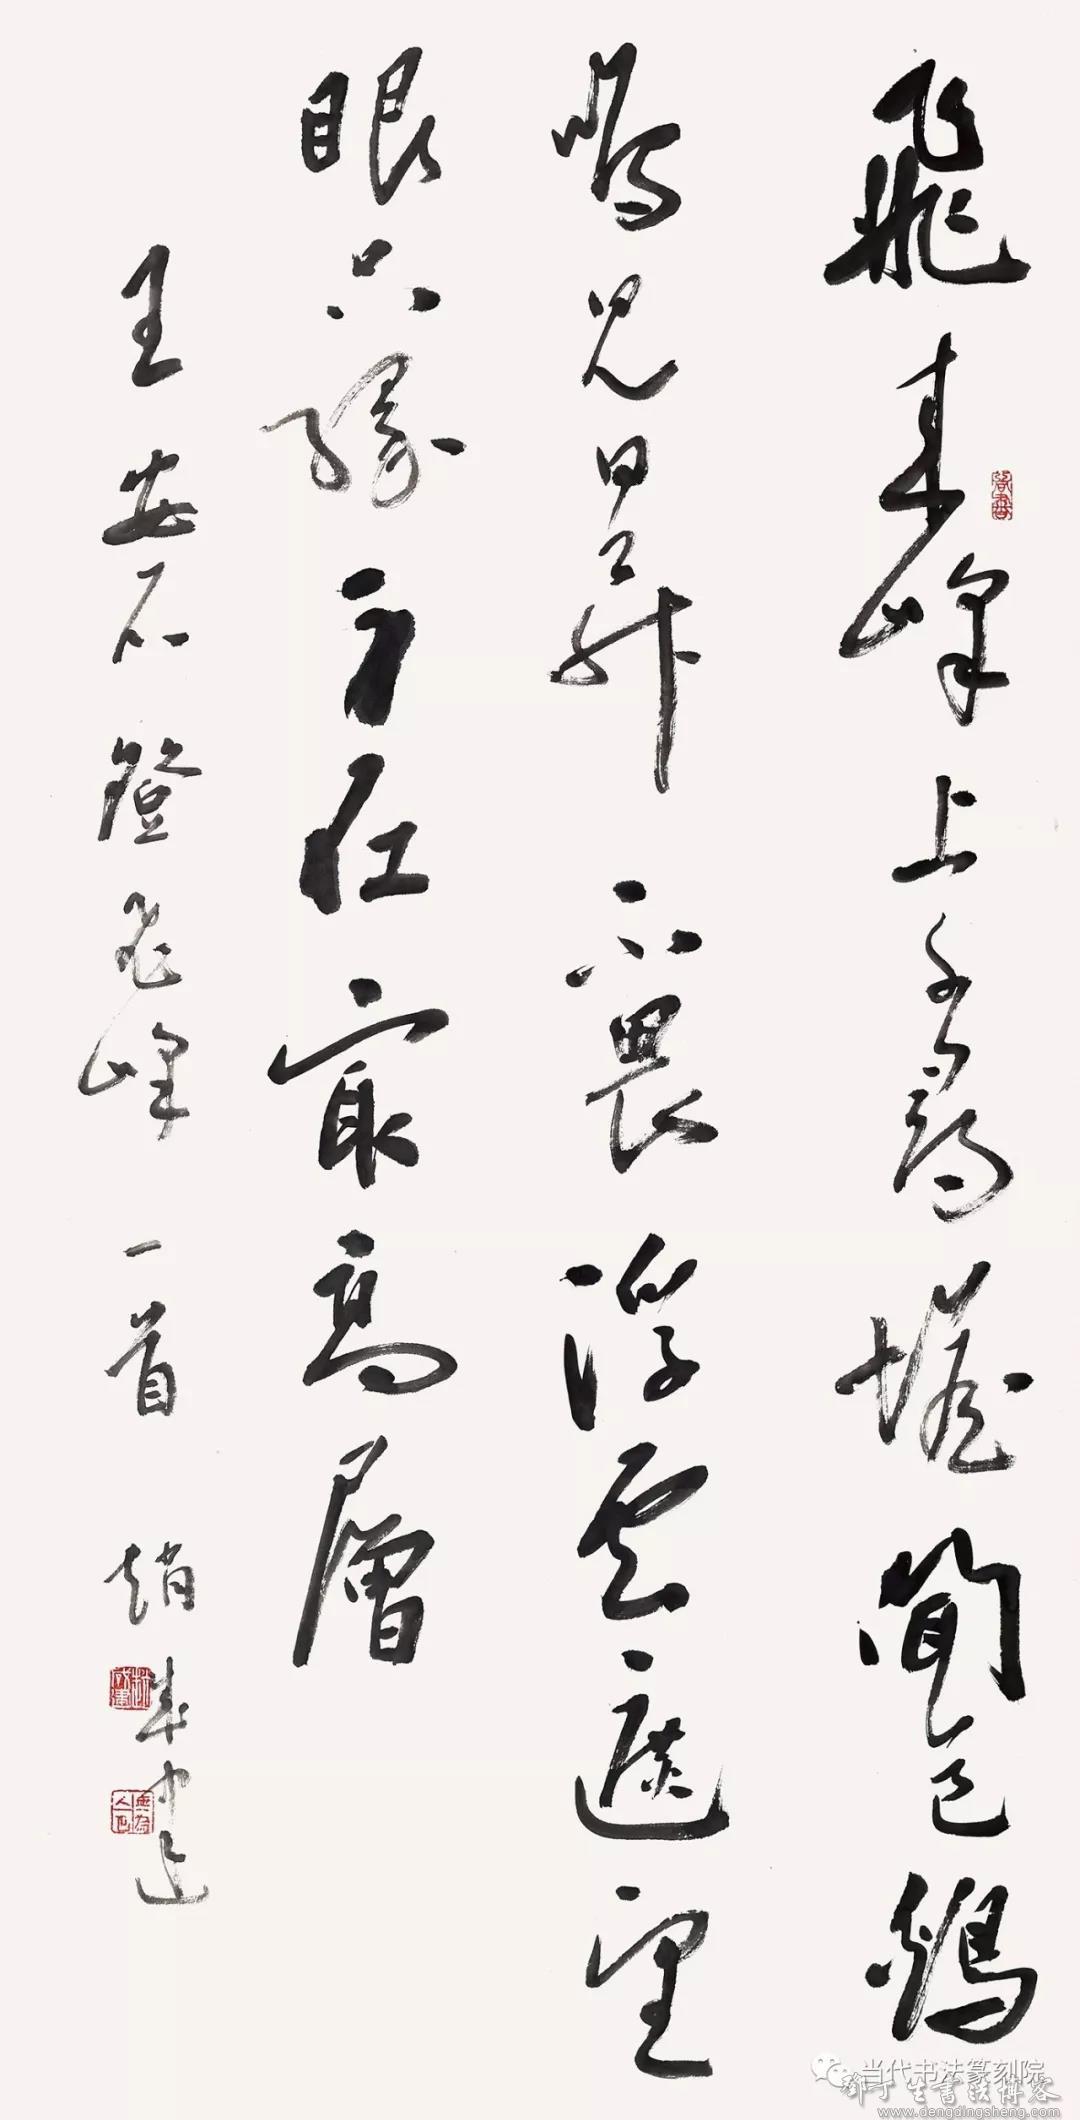 飛来峰上千尋塔聞說鷄
鳴見日昇不畏浮雲遮望
眼只緣身在最高層
王安石登飛峰一首 趙
当代书法篆刻院
邓丁生书法博客
www.dengdingsheng.com